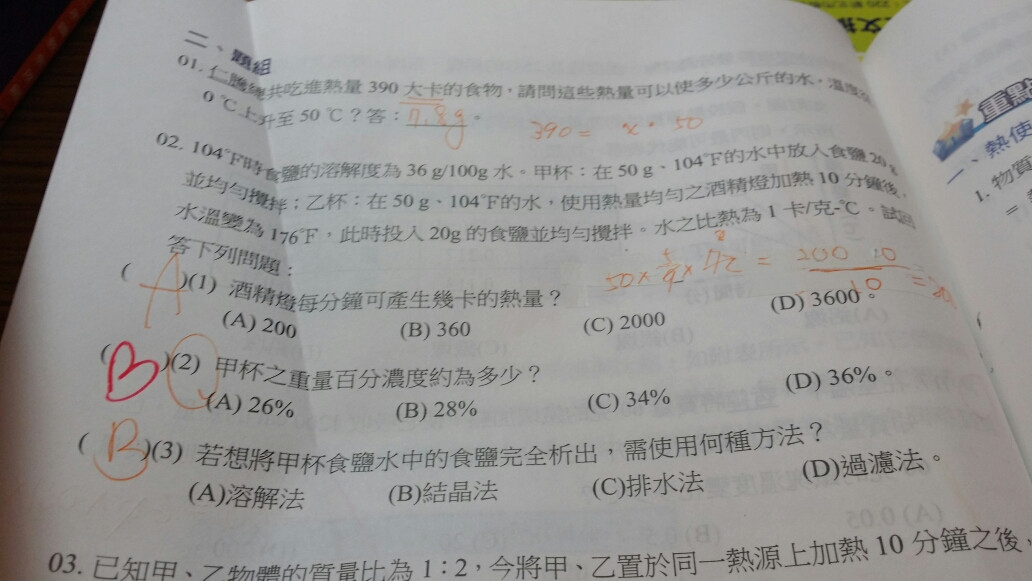 二、題組
01. 仁勝總共吃進熱量 390 大卡的食物，請問這些熱量可以使多少公斤的水，溫度從
0 ℃上升至 50 ℃？答：7.8g。
390 = x · 50
02. 104℉時食鹽的溶解度為 36 g/100g 水。甲杯：在 50 g、104℉的水中放入食鹽 20 g
並均勻攪拌；乙杯：在 50 g、104℉的水，使用熱量均勻之酒精燈加熱 10 分鐘後，
水溫變為 176℉，此時投入 20g 的食鹽並均勻攪拌。水之比熱為 1 卡/克-℃。試回
答下列問題：
(A)(1) 酒精燈每分鐘可產生幾卡的熱量？
(A) 200 (B) 360 (C) 2000 (D) 3600。
(B)(2) 甲杯之重量百分濃度約為多少？
(A) 26% (B) 28% (C) 34% (D) 36%。
(B)(3) 若想將甲杯食鹽水中的食鹽完全析出，需使用何種方法？
(A)溶解法 (B)結晶法 (C)排水法 (D)過濾法。
03. 已知甲、乙物體的質量比為 1：2，今將甲、乙置於同一熱源上加熱 10 分鐘之後，
重點
一、熱使
1. 物質